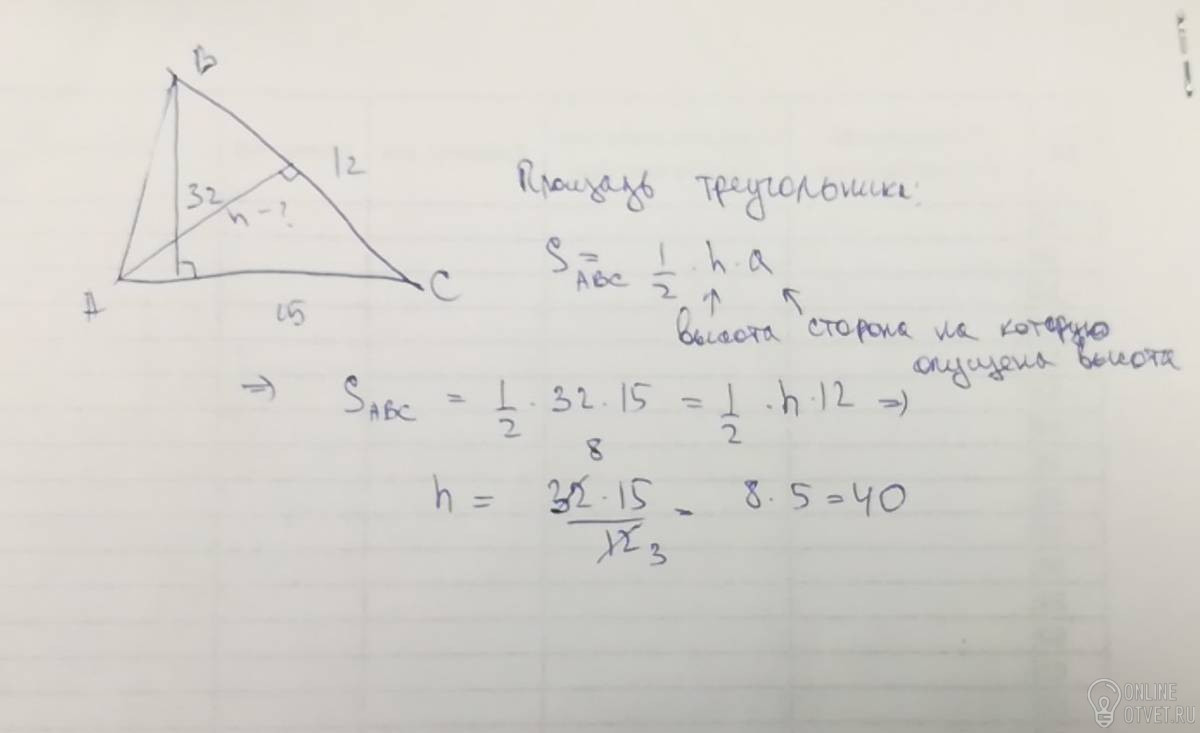 B
12
32
h - ?
A
C
15
Площадь треугольника:
S ABC = 1/2 · h · a
высота сторона на которую
опущена высота
=> S ABC = 1/2 · 32 · 15 = 1/2 · h · 12 =>
8
h = 32 · 15 / 12 3 = 8 · 5 = 40
ONLINE
OTVET.RU